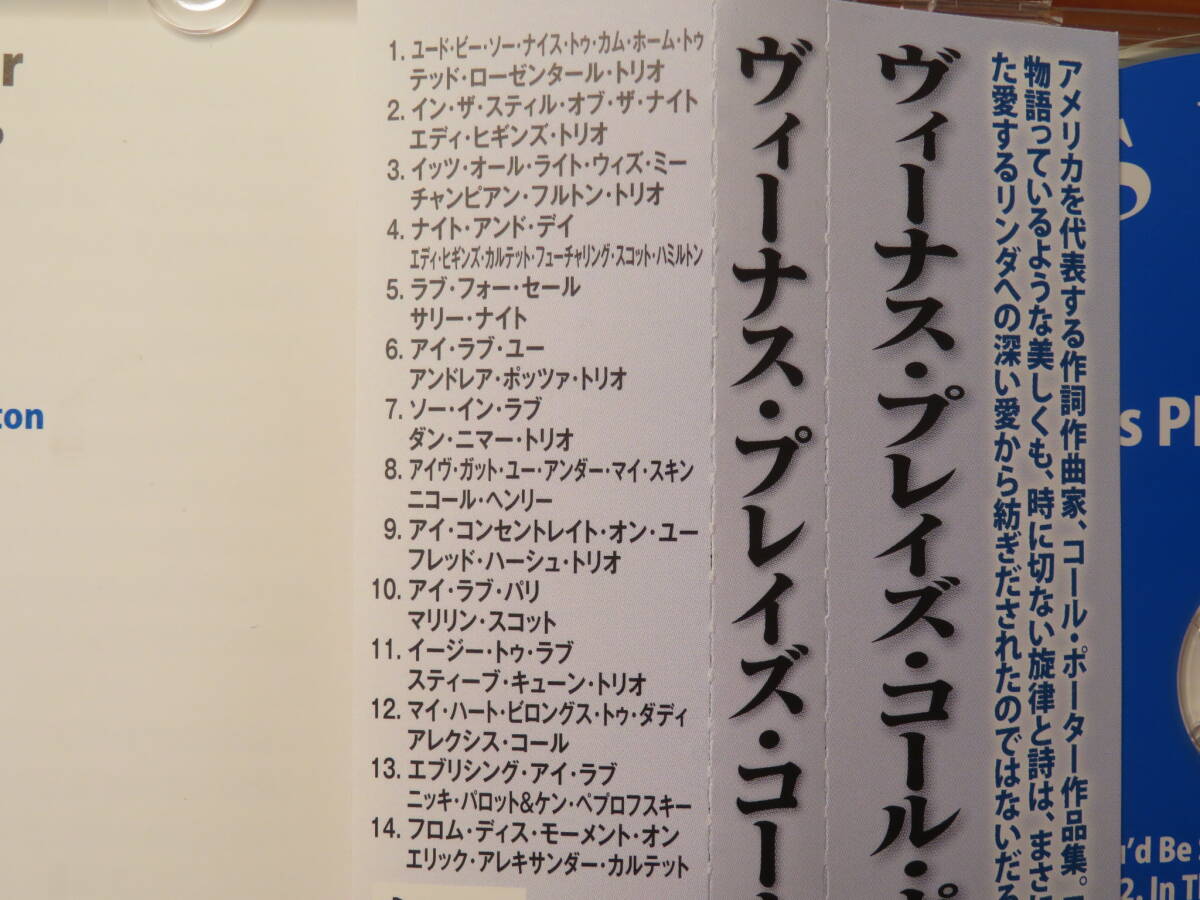 r
ton
1. ユード・ビー・ソー・ナイス・トゥ・カム・ホーム・トゥ
テッド・ローゼンタール・トリオ
2. イン・ザ・スティル・オブ・ザ・ナイト
エディ・ヒギンズ・トリオ
3. イッツ・オール・ライト・ウィズ・ミー
チャンピアン・フルトン・トリオ
4. ナイト・アンド・デイ
エディ・ヒギンズ・カルテット・フューチャリング・スコット・ハミルトン
5. ラブ・フォー・セール
サリー・ナイト
6. アイ・ラブ・ユー
アンドレア・ポッツァ・トリオ
7. ソー・イン・ラブ
ダン・ニマー・トリオ
8. アイヴ・ガット・ユー・アンダー・マイ・スキン
ニコール・ヘンリー
9. アイ・コンセントレイト・オン・ユー
フレッド・ハーシュ・トリオ
10. アイ・ラブ・パリ
マリリン・スコット
11. イージー・トゥ・ラブ
スティーブ・キューン・トリオ
12. マイ・ハート・ビロングス・トゥ・ダディ
アレクシス・コール
13. エブリシング・アイ・ラブ
ニッキ・パロット&ケン・ペプロフスキー
14. フロム・ディス・モーメント・オン
エリック・アレキサンダー・カルテット
ヴィーナス・プレイズ・コー
ヴィーナス・プレイズ・コール・ポ
アメリカを代表する作詞作曲家、コール・ポーター作品集。
物語っているような美しくも、時に切ない旋律と詩は、まさに
た愛するリンダへの深い愛から紡ぎだされたのではないだろ
s Pl
u'd Be S
2. In Th